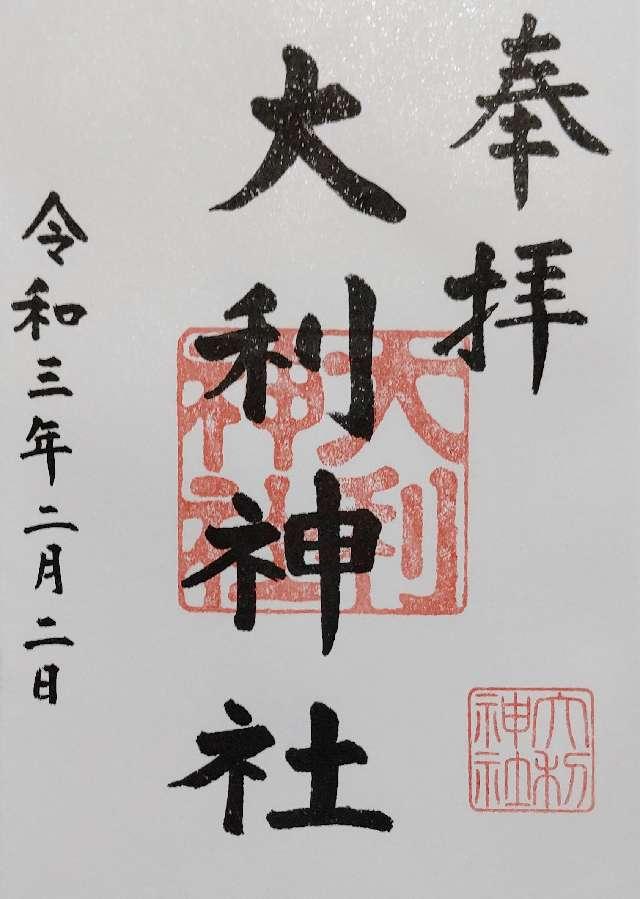 奉拝
大利神社
大利神社
令和三年二月二日
大利神社